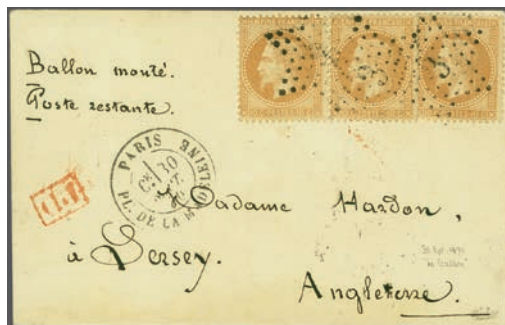 Ballon monté.
Poste restante.
PARIS
30
PL. DE LA MADELEINE
Madame Hardon,
à Jersey.
Angleterre.